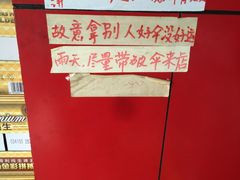 故意拿别人好伞没好运
雨天尽量带破伞来店